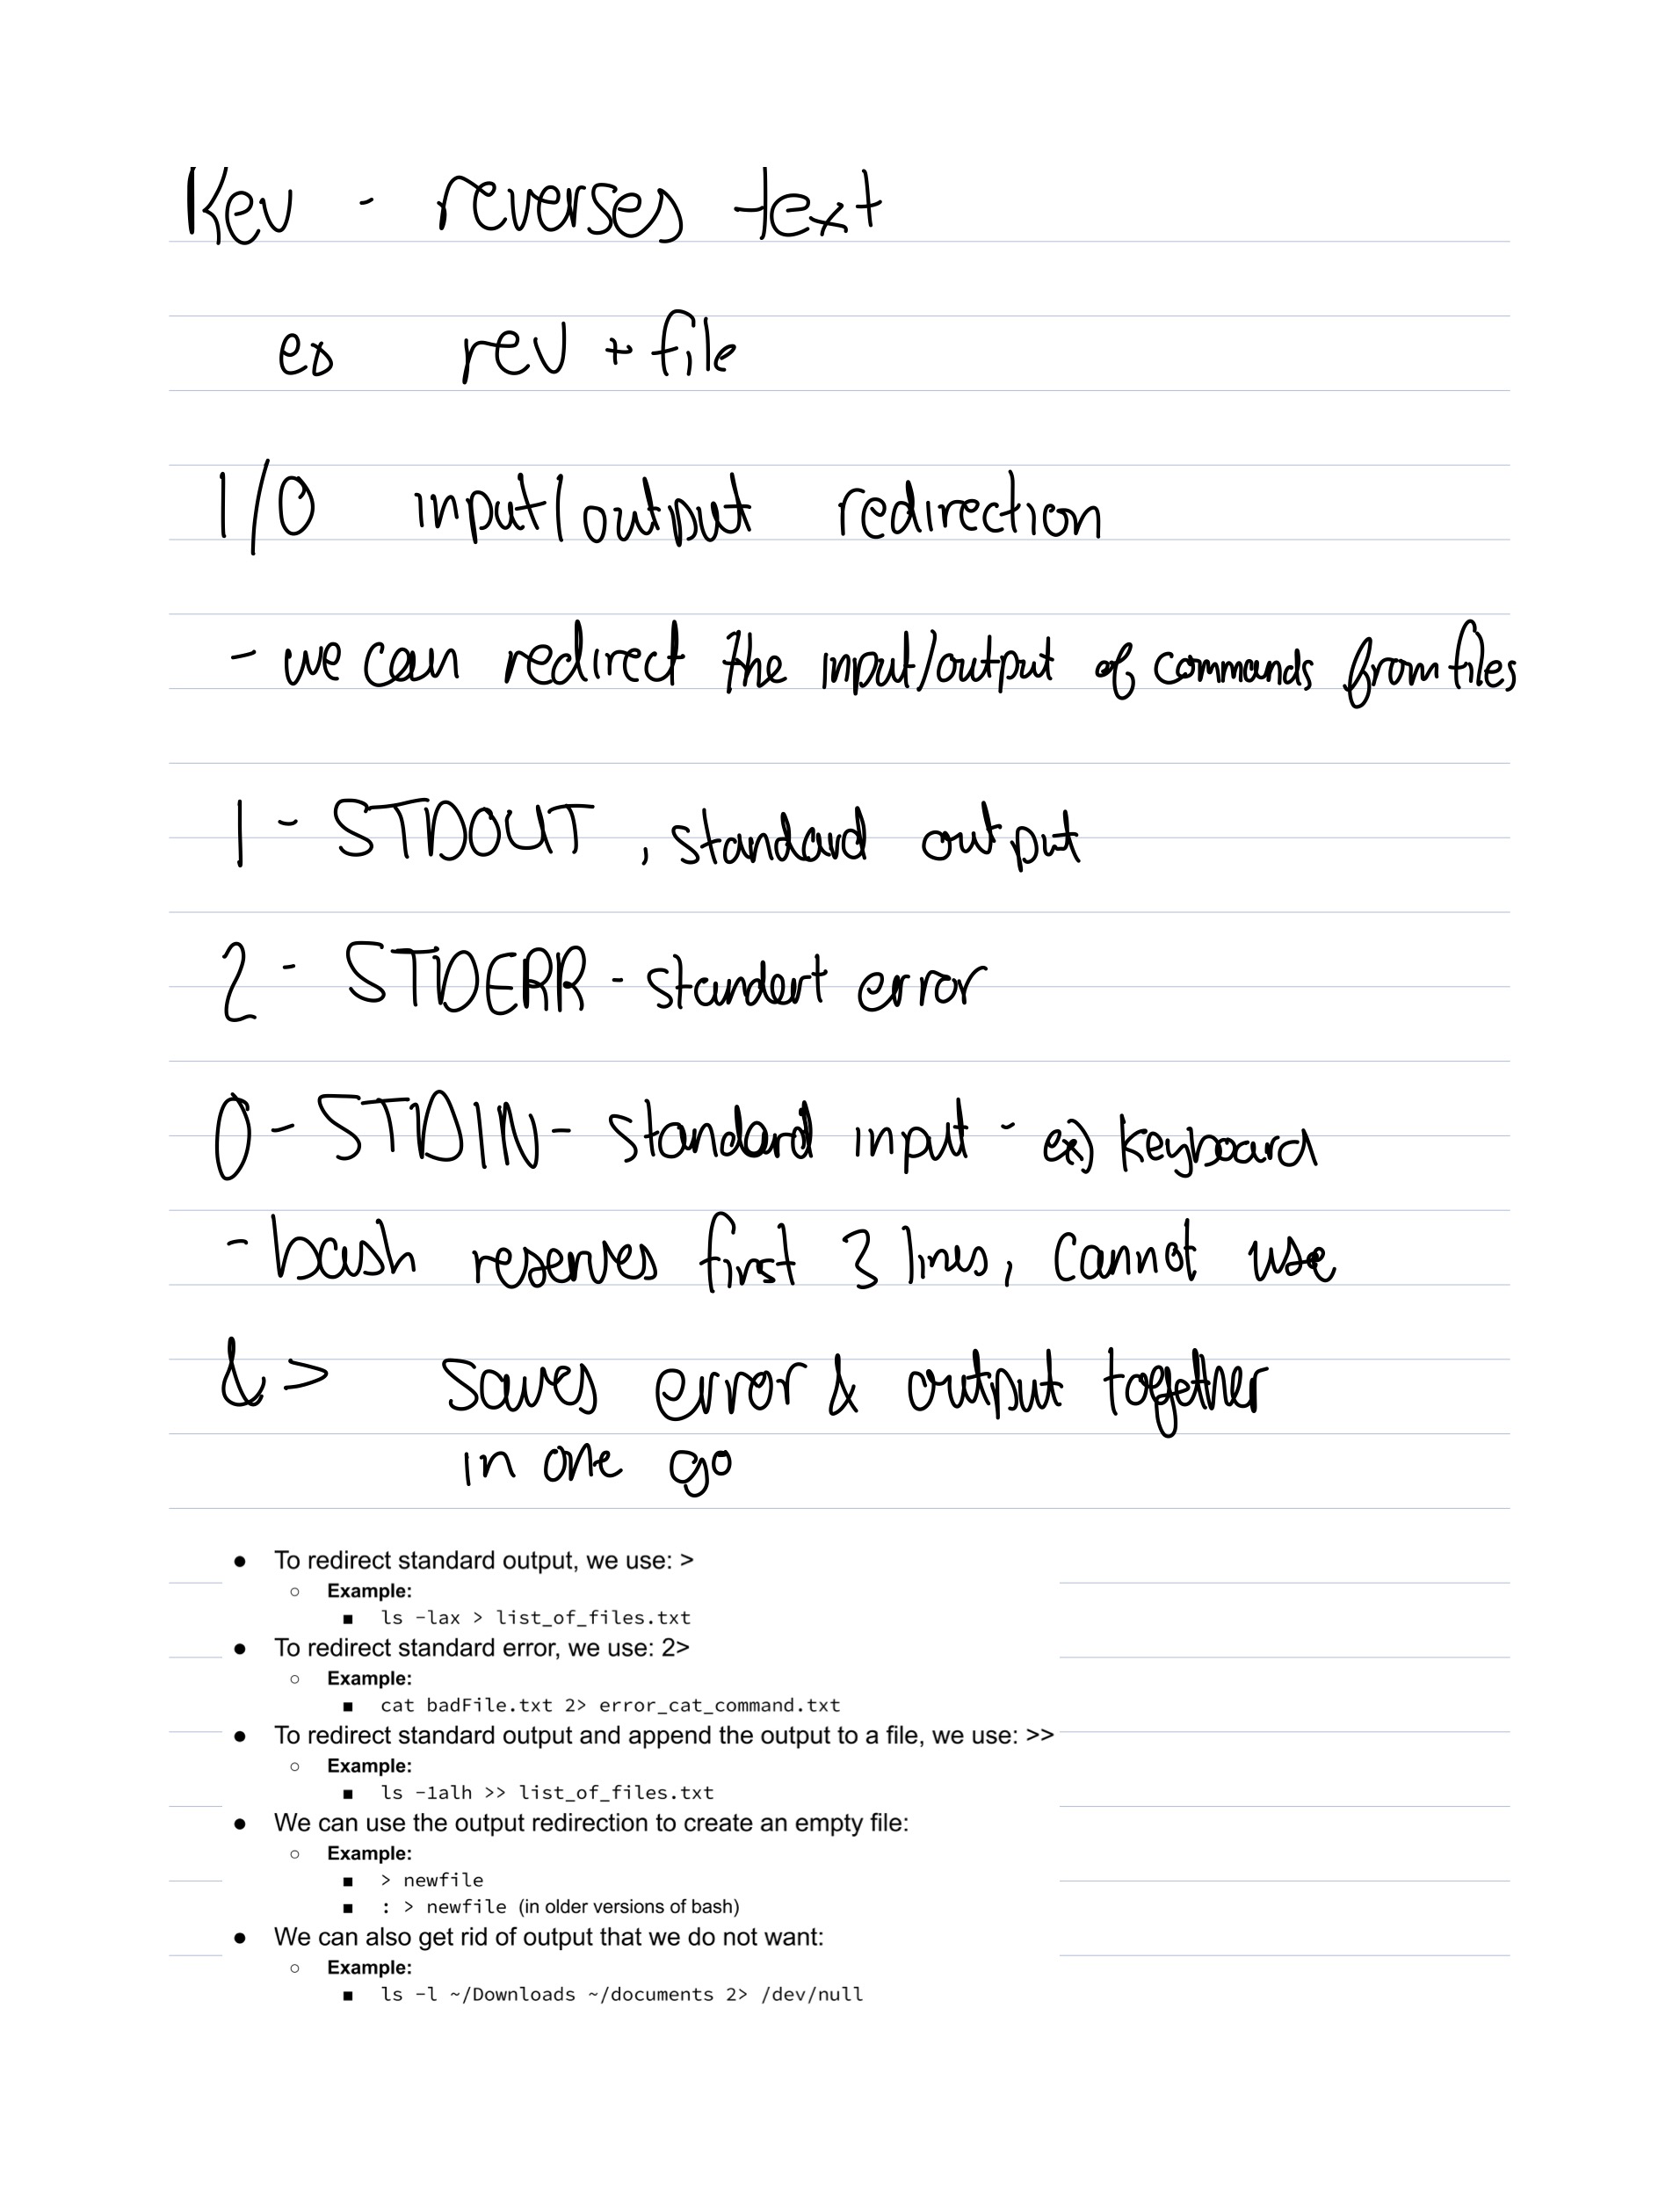 Rev - reverses text
ex rev + file
I/O input/output redirection
- we can redirect the input/output of commands from files
1 - STDOUT, standard output
2 - STDERR - standert error
0 - STDIN - standard input - ex) keyboard
- bash reserves first 3 lines, cannot use
& > saves error & output together
in one go
● To redirect standard output, we use: >
○ Example:
■ ls -lax > list_of_files.txt
● To redirect standard error, we use: 2>
○ Example:
■ cat badFile.txt 2> error_cat_command.txt
● To redirect standard output and append the output to a file, we use: >>
○ Example:
■ ls -1alh >> list_of_files.txt
● We can use the output redirection to create an empty file:
○ Example:
■ > newfile
■ : > newfile (in older versions of bash)
● We can also get rid of output that we do not want:
○ Example:
■ ls -l ~/Downloads ~/documents 2> /dev/null